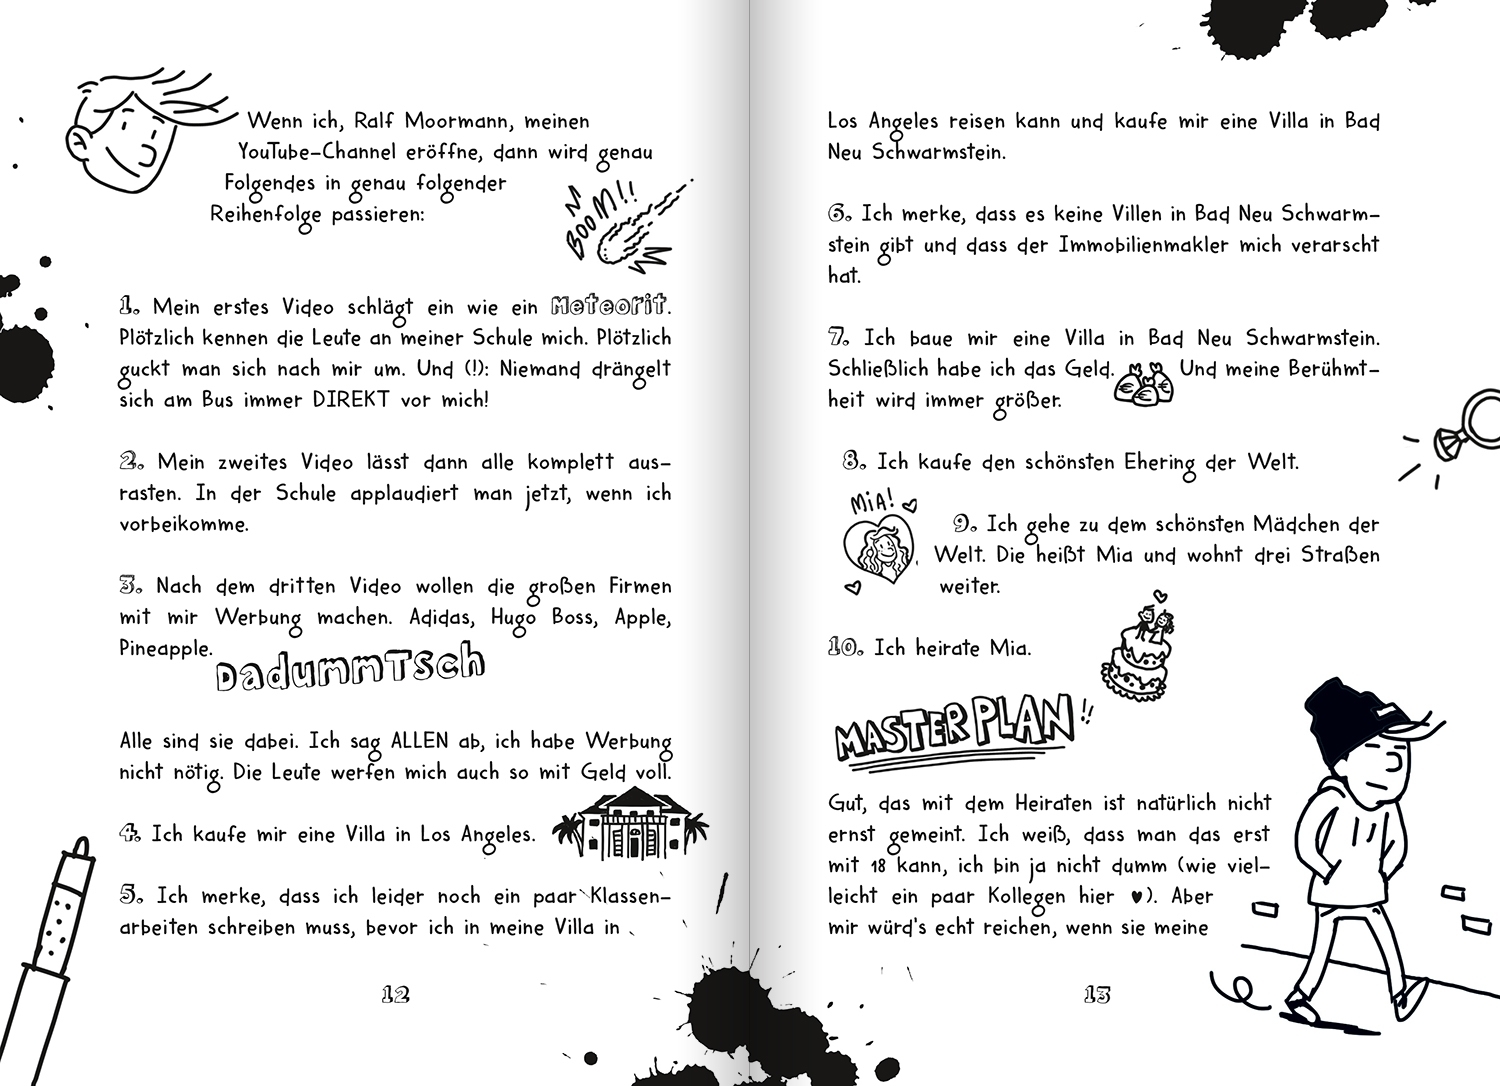 Wenn ich, Ralf Moormann, meinen
YouTube-Channel eröffne, dann wird genau
Folgendes in genau folgender
Reihenfolge passieren:
BOOM!!
1. Mein erstes Video schlägt ein wie ein Meteorit.
Plötzlich kennen die Leute an meiner Schule mich. Plötzlich
guckt man sich nach mir um. Und (!): Niemand drängelt
sich am Bus immer DIREKT vor mich!
2. Mein zweites Video lässt dann alle komplett aus-
rasten. In der Schule applaudiert man jetzt, wenn ich
vorbeikomme.
3. Nach dem dritten Video wollen die großen Firmen
mit mir Werbung machen. Adidas, Hugo Boss, Apple,
Pineapple.
DadummTsch
Alle sind sie dabei. Ich sag ALLEN ab, ich habe Werbung
nicht nötig. Die Leute werfen mich auch so mit Geld voll.
4. Ich kaufe mir eine Villa in Los Angeles.
5. Ich merke, dass ich leider noch ein paar Klassen-
arbeiten schreiben muss, bevor ich in meine Villa in
12
Los Angeles reisen kann und kaufe mir eine Villa in Bad
Neu Schwarmstein.
6. Ich merke, dass es keine Villen in Bad Neu Schwarm-
stein gibt und dass der Immobilienmakler mich verarscht
hat.
7. Ich baue mir eine Villa in Bad Neu Schwarmstein.
Schließlich habe ich das Geld. Und meine Berühmt-
heit wird immer größer.
8. Ich kaufe den schönsten Ehering der Welt.
MiA!
9. Ich gehe zu dem schönsten Mädchen der
Welt. Die heißt Mia und wohnt drei Straßen
weiter.
10. Ich heirate Mia.
MASTERPLAN!!
Gut, das mit dem Heiraten ist natürlich nicht
ernst gemeint. Ich weiß, dass man das erst
mit 18 kann, ich bin ja nicht dumm (wie viel-
leicht ein paar Kollegen hier ♥). Aber
mir würd's echt reichen, wenn sie meine
13